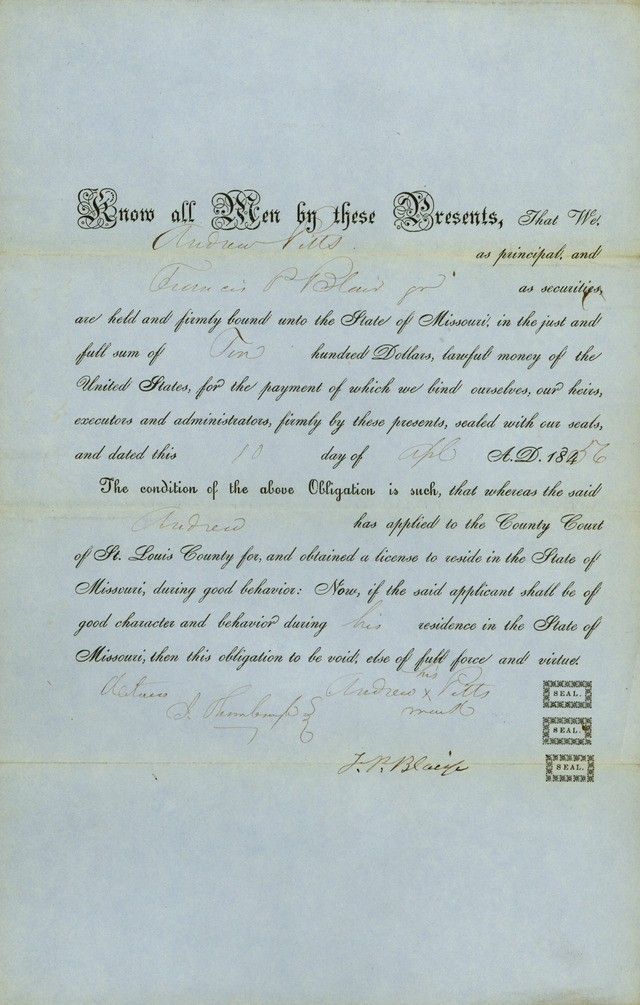 Know all Men by these Presents, That We,
Andrew Pitts
as principal, and
Francis P Blair jr as securities,
are held and firmly bound unto the State of Missouri, in the just and
full sum of Ten hundred Dollars, lawful money of the
United States, for the payment of which we bind ourselves, our heirs,
executors and administrators, firmly by these presents, sealed with our seals,
and dated this 10 day of Apl A.D. 1856
The condition of the above Obligation is such, that whereas the said
Andrew has applied to the County Court
of St. Louis County for, and obtained a license to reside in the State of
Missouri, during good behavior: Now, if the said applicant shall be of
good character and behavior during his residence in the State of
Missouri, then this obligation to be void, else of full force and virtue.
his
Andrew x Pitts SEAL.
mark
SEAL.
F. P. Blair jr SEAL.